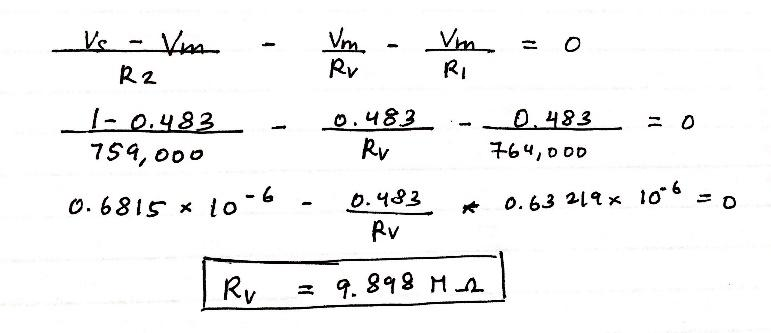 (Vs - Vm)/R2 - Vm/Rv - Vm/R1 = 0
(1 - 0.483)/759,000 - 0.483/Rv - 0.483/764,000 = 0
0.6815 × 10^-6 - 0.483/Rv * 0.63219 × 10^-6 = 0
Rv = 9.898 M Ω